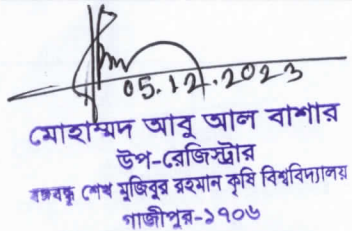 05.12.2023
মোহাম্মদ আবু আল বাশার
উপ-রেজিস্ট্রার
বঙ্গবন্ধু শেখ মুজিবুর রহমান কৃষি বিশ্ববিদ্যালয়
গাজীপুর-১৭০৬